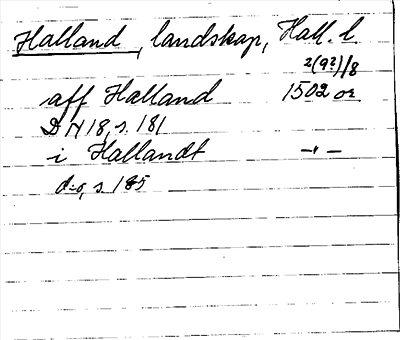 Halland, landskap, Hall. l.
2(9?)/8
aff Halland 1502 or
DN 18, s. 181
i Hallandt -"-
d:o, s. 185